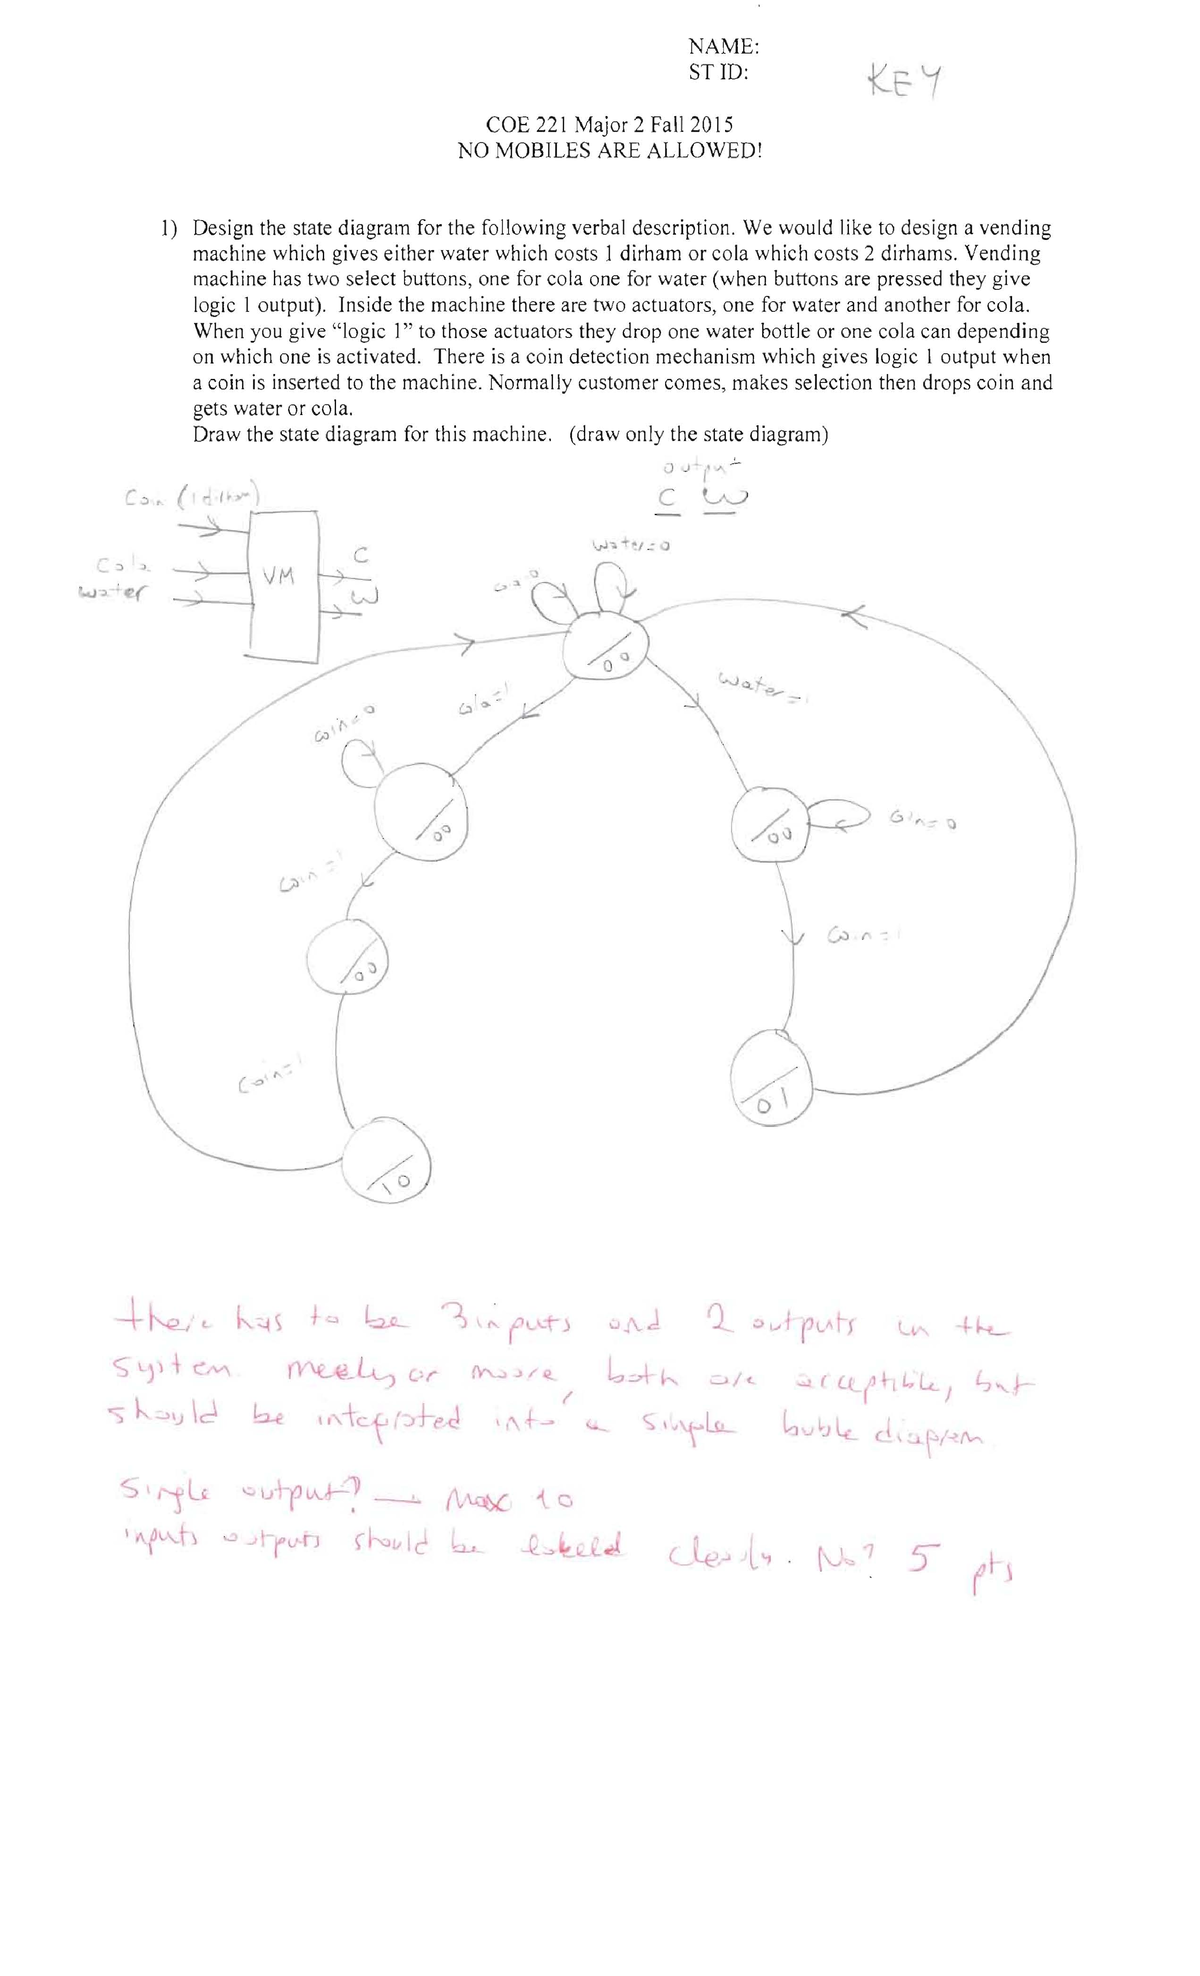 NAME:
ST ID:
KEY
COE 221 Major 2 Fall 2015
NO MOBILES ARE ALLOWED!
1) Design the state diagram for the following verbal description. We would like to design a vending
machine which gives either water which costs 1 dirham or cola which costs 2 dirhams. Vending
machine has two select buttons, one for cola one for water (when buttons are pressed they give
logic 1 output). Inside the machine there are two actuators, one for water and another for cola.
When you give “logic 1” to those actuators they drop one water bottle or one cola can depending
on which one is activated. There is a coin detection mechanism which gives logic 1 output when
a coin is inserted to the machine. Normally customer comes, makes selection then drops coin and
gets water or cola.
Draw the state diagram for this machine. (draw only the state diagram)
output
C W
Coin (1 dirham)
Cola
water
VM
C
W
water=0
/00
cola=1
water=1
coin=0
/00
/00
coin=0
coin=1
/00
coin=1
coin=1
/01
/10
there has to be 3 inputs and 2 outputs in the
system. meely or moore, both are acceptible, but
should be integrated into a single buble diagram
Single output? → Max 10
inputs outputs should be labeled clearly. No? 5 pts